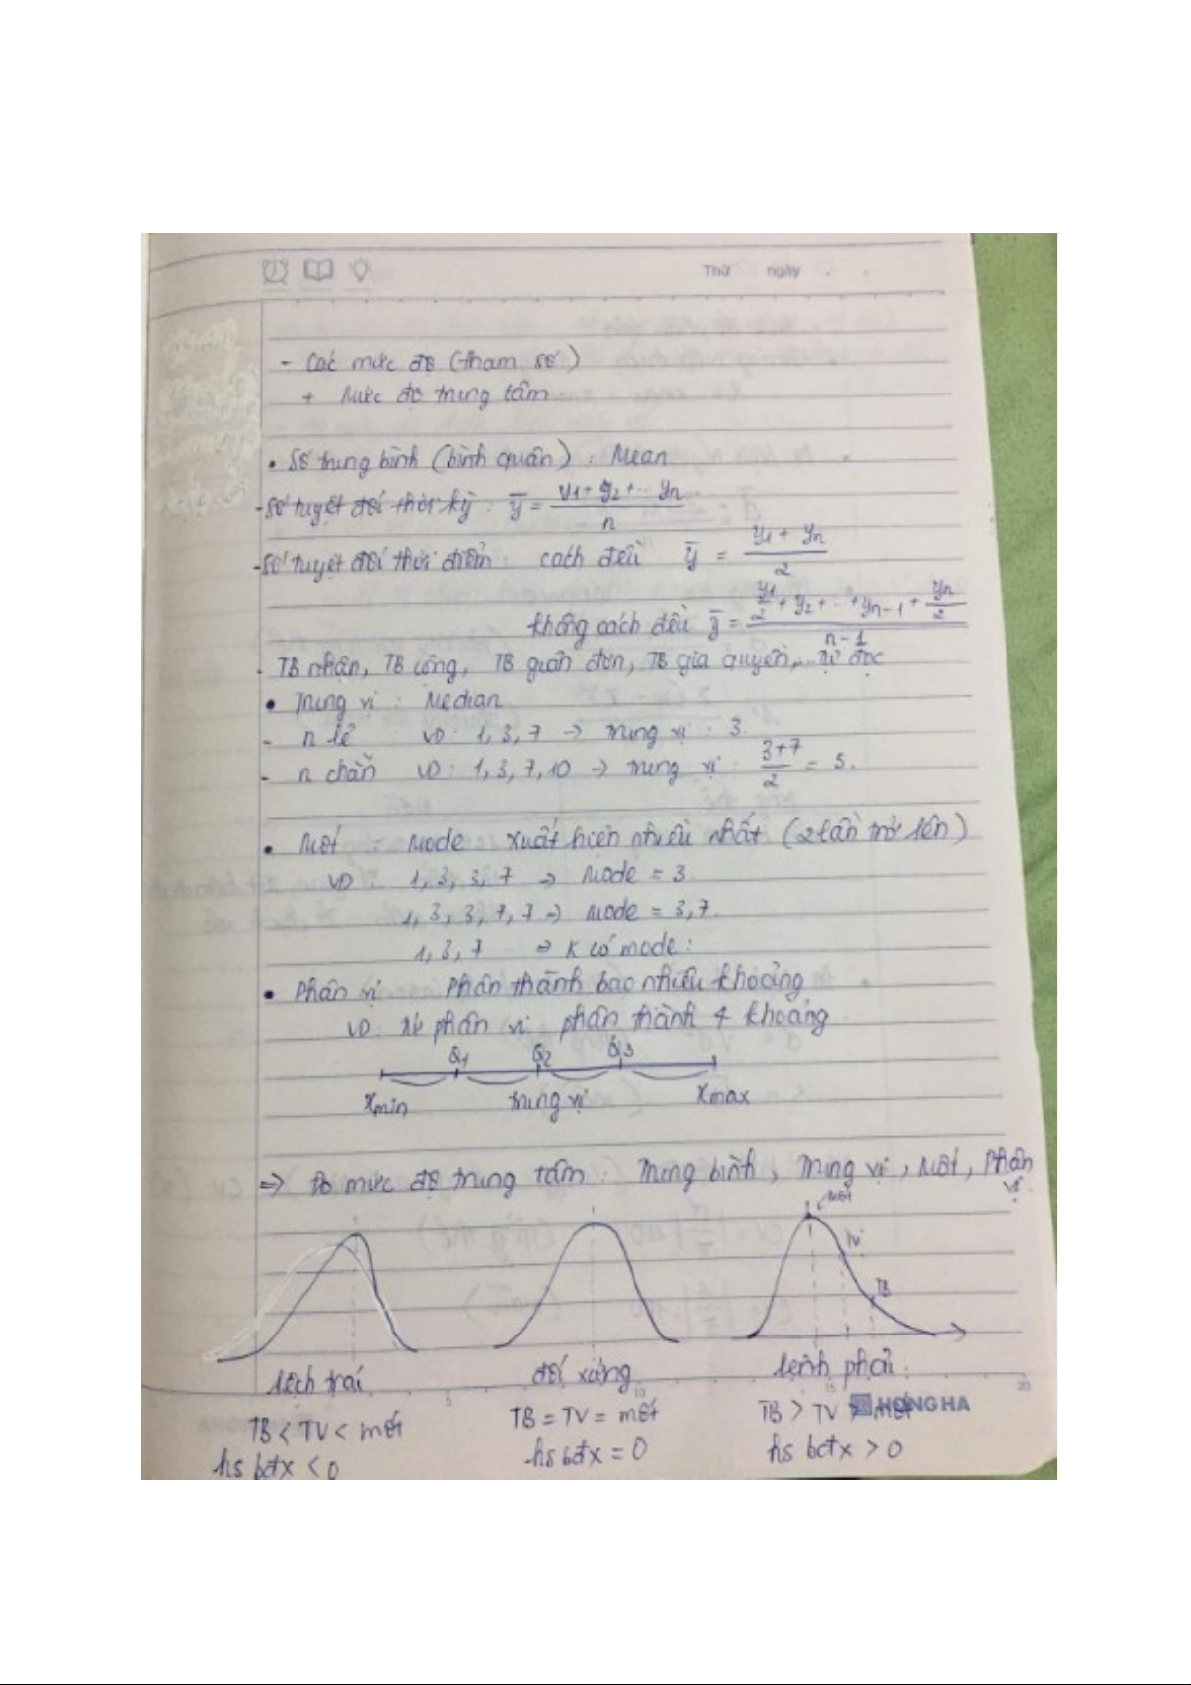 Thứ ngày
- Các mức độ (tham số)
+ Mức độ trung tâm
• Số trung bình (bình quân) : Mean
- Số tuyệt đối thời kỳ : ȳ = (y1 + y2 + ... yn) / n
- Số tuyệt đối thời điểm : cách đều ȳ = (y1 + yn) / 2
không cách đều ȳ = (y1/2 + y2 + ... + yn-1 + yn/2) / (n-1)
- TB nhân, TB cộng, TB giản đơn, TB gia quyền,... tự đọc
• Trung vị : Median
- n lẻ VD : 1, 3, 7 → trung vị : 3.
- n chẵn VD : 1, 3, 7, 10 → trung vị : (3+7)/2 = 5.
• Mốt : Mode xuất hiện nhiều nhất (2 lần trở lên)
VD : 1, 3, 3, 7 → Mode = 3
1, 3, 3, 7, 7 → Mode = 3, 7.
1, 3, 7 → K có mode :
• Phân vị Phân thành bao nhiêu khoảng
VD : tứ phân vị phân thành 4 khoảng
Q1 Q2 Q3
Xmin trung vị Xmax
⇒ Đo mức độ trung tâm : Trung bình, trung vị, Mốt, Phân vị.
Mốt
TV
TB
lệch trái đối xứng lệnh phải.
5 10 15 20
HONG HA
TB < TV < mốt TB = TV = mốt TB > TV > mốt
hs bđx < 0 hs bđx = 0 hs bđx > 0